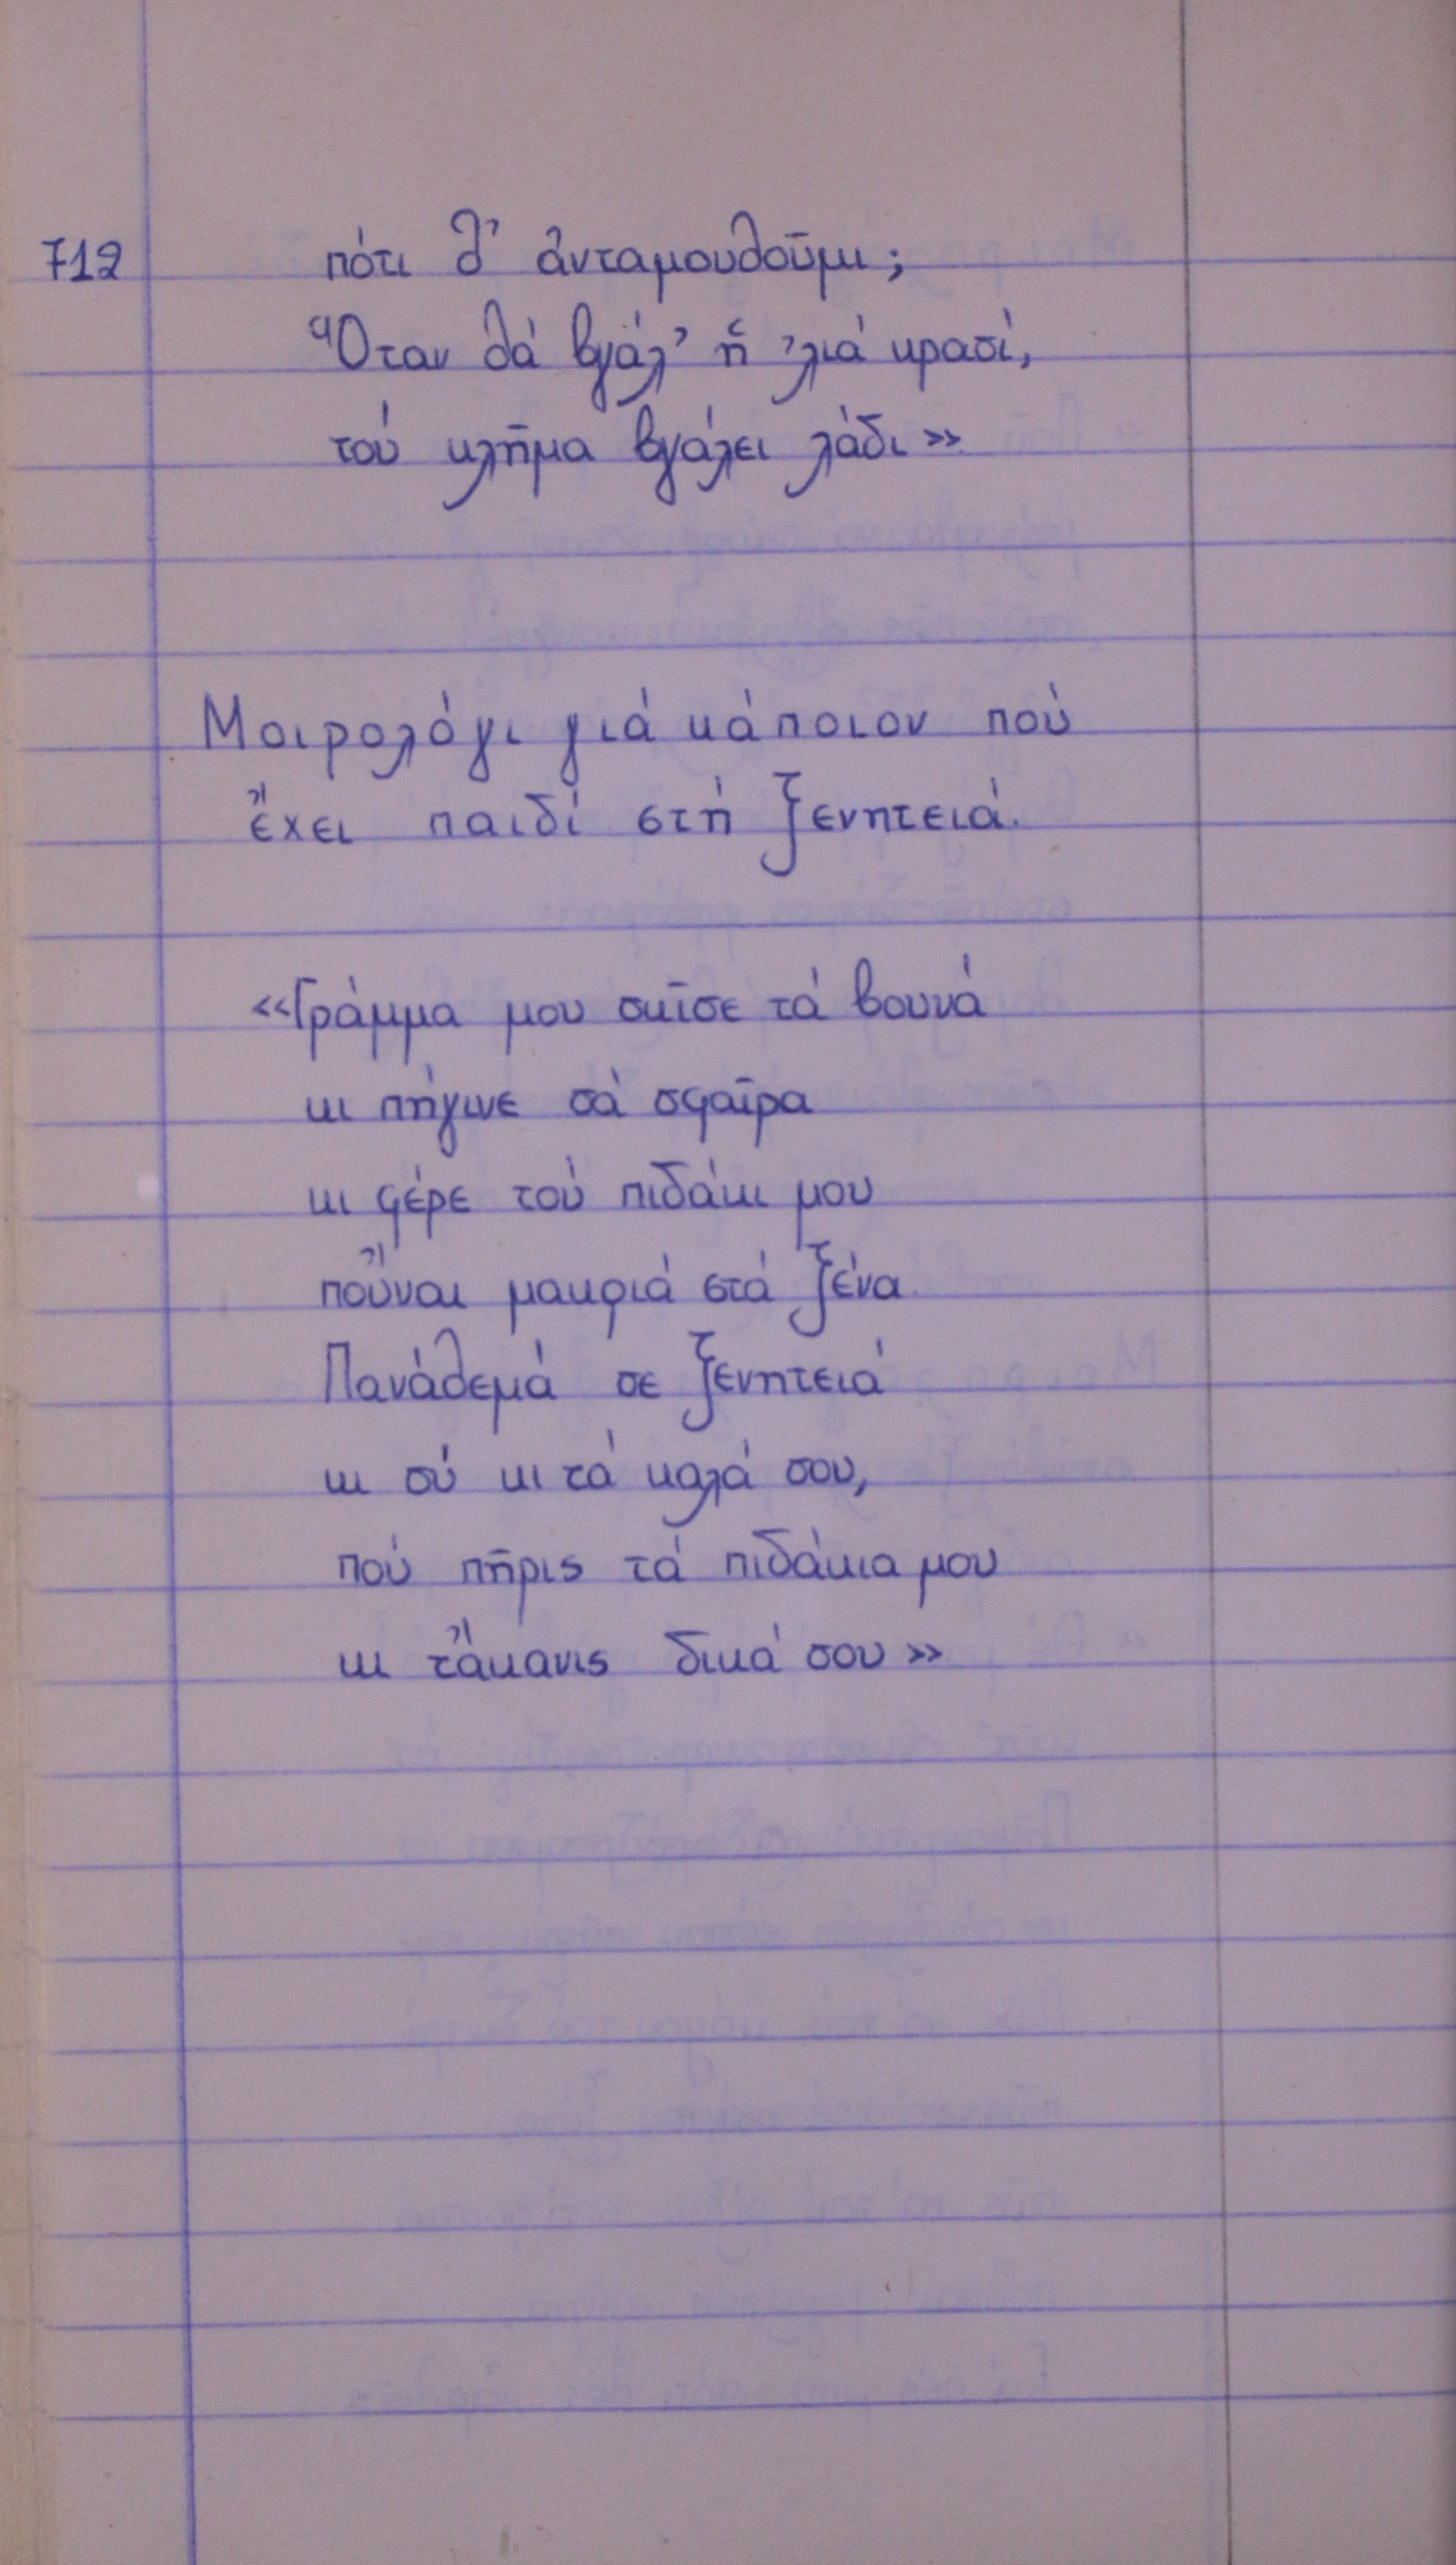 712 πότι θ' ἀνταμουθοῦμι;
Ὅταν θά βγάλ' ἡ 'λιά κρασί,
τού κλῆμα βγάλει λάδι»
Μοιρολόγι γιά κάποιον πού
ἔχει παιδί στή ξενητειά.
«Γράμμα μου σκῖσε τά βουνά
κι πήγινε σά σφαῖρα
κι φέρε τού πιδάκι μου
ποὔναι μακριά στά ξένα.
Πανάθεμά σε ξενητειά
κι σύ κι τά καλά σου,
πού πῆρις τά πιδάκια μου
κι τἄκανις δικά σου»